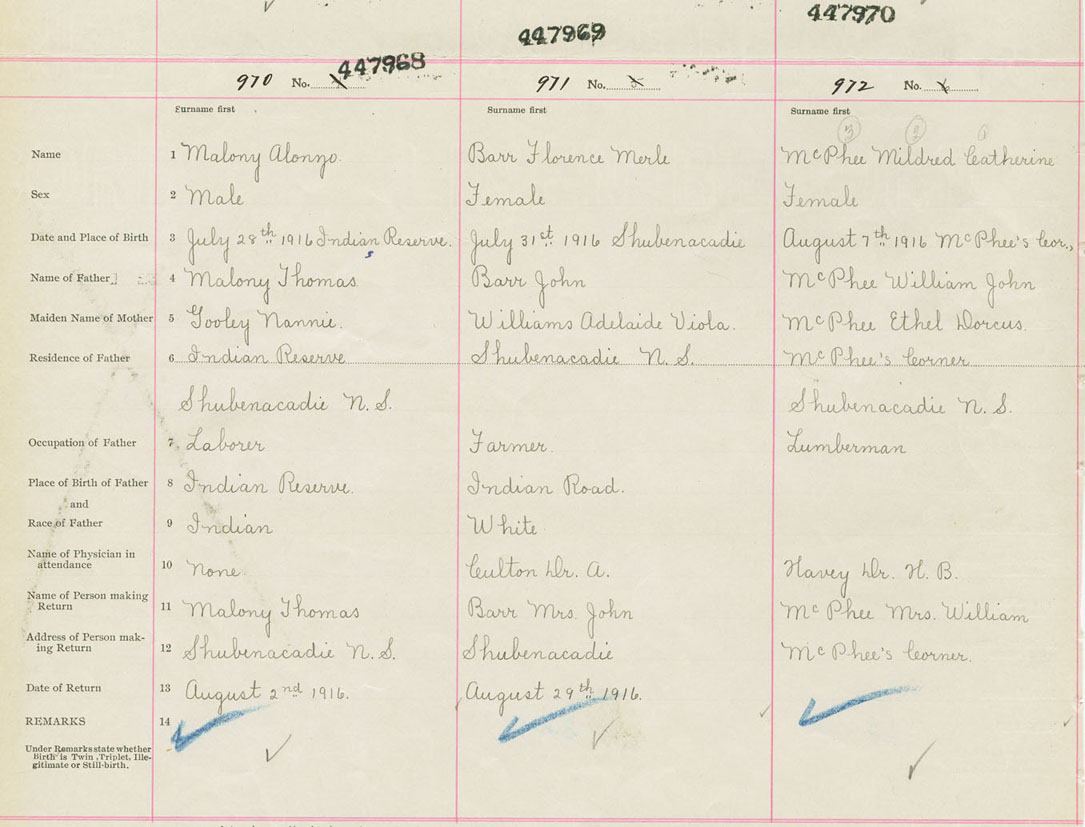 447970
447969
447968
970 No. 971 No. 972 No.
Surname first Surname first Surname first
3 2 1
Name 1 Malony Alonzo. Barr Florence Merle McPhee Mildred Catherine
Sex 2 Male Female Female
Date and Place of Birth 3 July 28th 1916 Indian Reserve. July 31st 1916 Shubenacadie August 7th 1916 McPhee's Cor.,
s
Name of Father 4 Malony Thomas Barr John McPhee William John
Maiden Name of Mother 5 Gooley Nannie. Williams Adelaide Viola. McPhee Ethel Dorcus.
Residence of Father 6 Indian Reserve Shubenacadie N. S. McPhee's Corner
Shubenacadie N. S. Shubenacadie N. S.
Occupation of Father 7 Laborer Farmer. Lumberman
Place of Birth of Father 8 Indian Reserve. Indian Road.
and
Race of Father 9 Indian White
Name of Physician in
attendance 10 None Culton Dr. A. Havey Dr. H. B.
Name of Person making
Return 11 Malony Thomas Barr Mrs. John McPhee Mrs. William
Address of Person mak-
ing Return 12 Shubenacadie N. S. Shubenacadie McPhee's Corner.
Date of Return 13 August 2nd 1916. August 29th 1916.
REMARKS 14
Under Remarks state whether
Birth is Twin, Triplet, Ille-
gitimate or Still-birth.